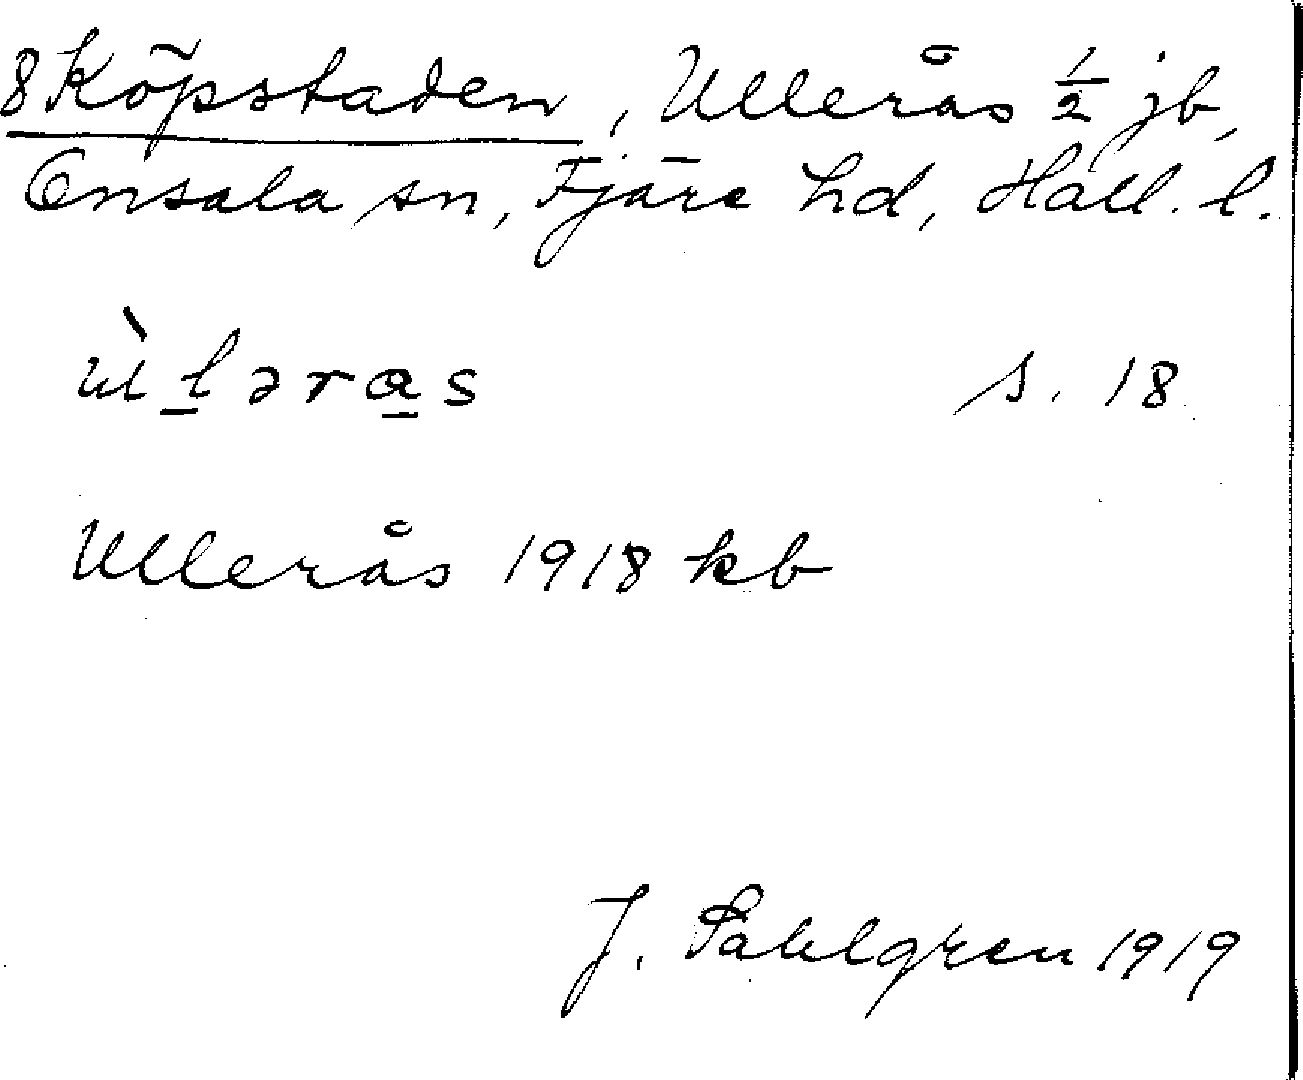 8 Köpstaden, Ullerås ½ jb,
Onsala sn, Fjäre hd, Hall. l.
ùlərɑs s. 18
Ullerås 1918 kb
J. Sahlgren 1919